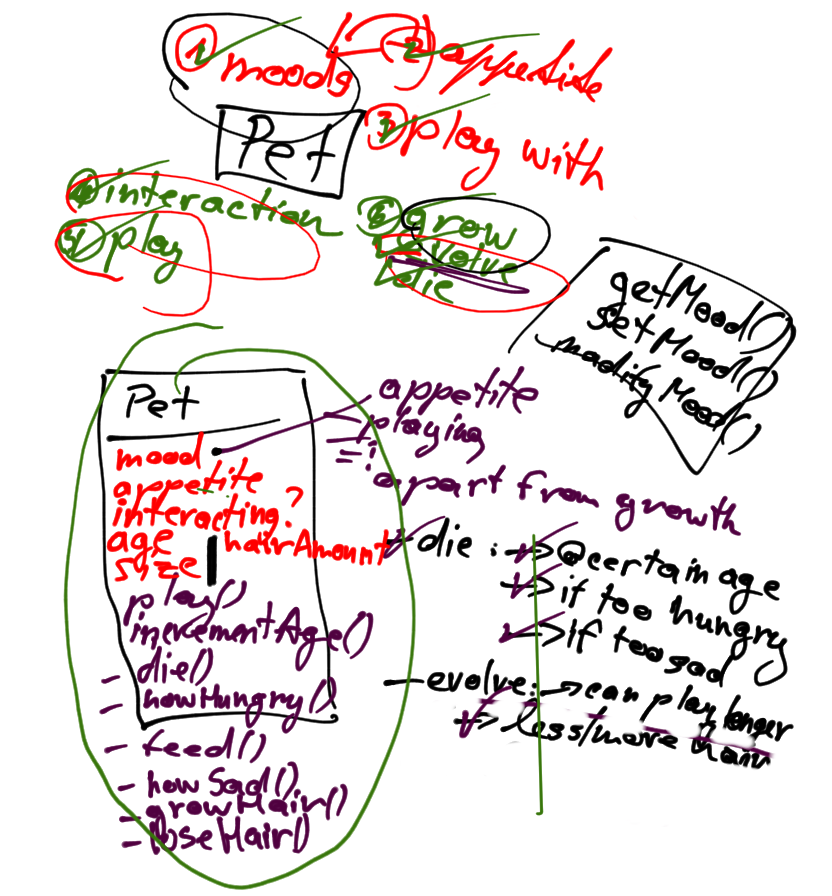 ① moods
② appetite
Pet
③ play with
④ interaction
⑤ play
⑥ grow
evolve
die
getMood()
setMood()
modifyMood()
Pet
mood
appetite
interacting?
age
size
hairAmount
play()
incrementAge()
- die()
- howHungry()
- feed()
- howSad()
- growHair()
- loseHair()
appetite
playing
=!
apart from growth
die : → @certain age
→ if too hungry
→ If too sad
- evolve: → can play longer
→ less/more hair